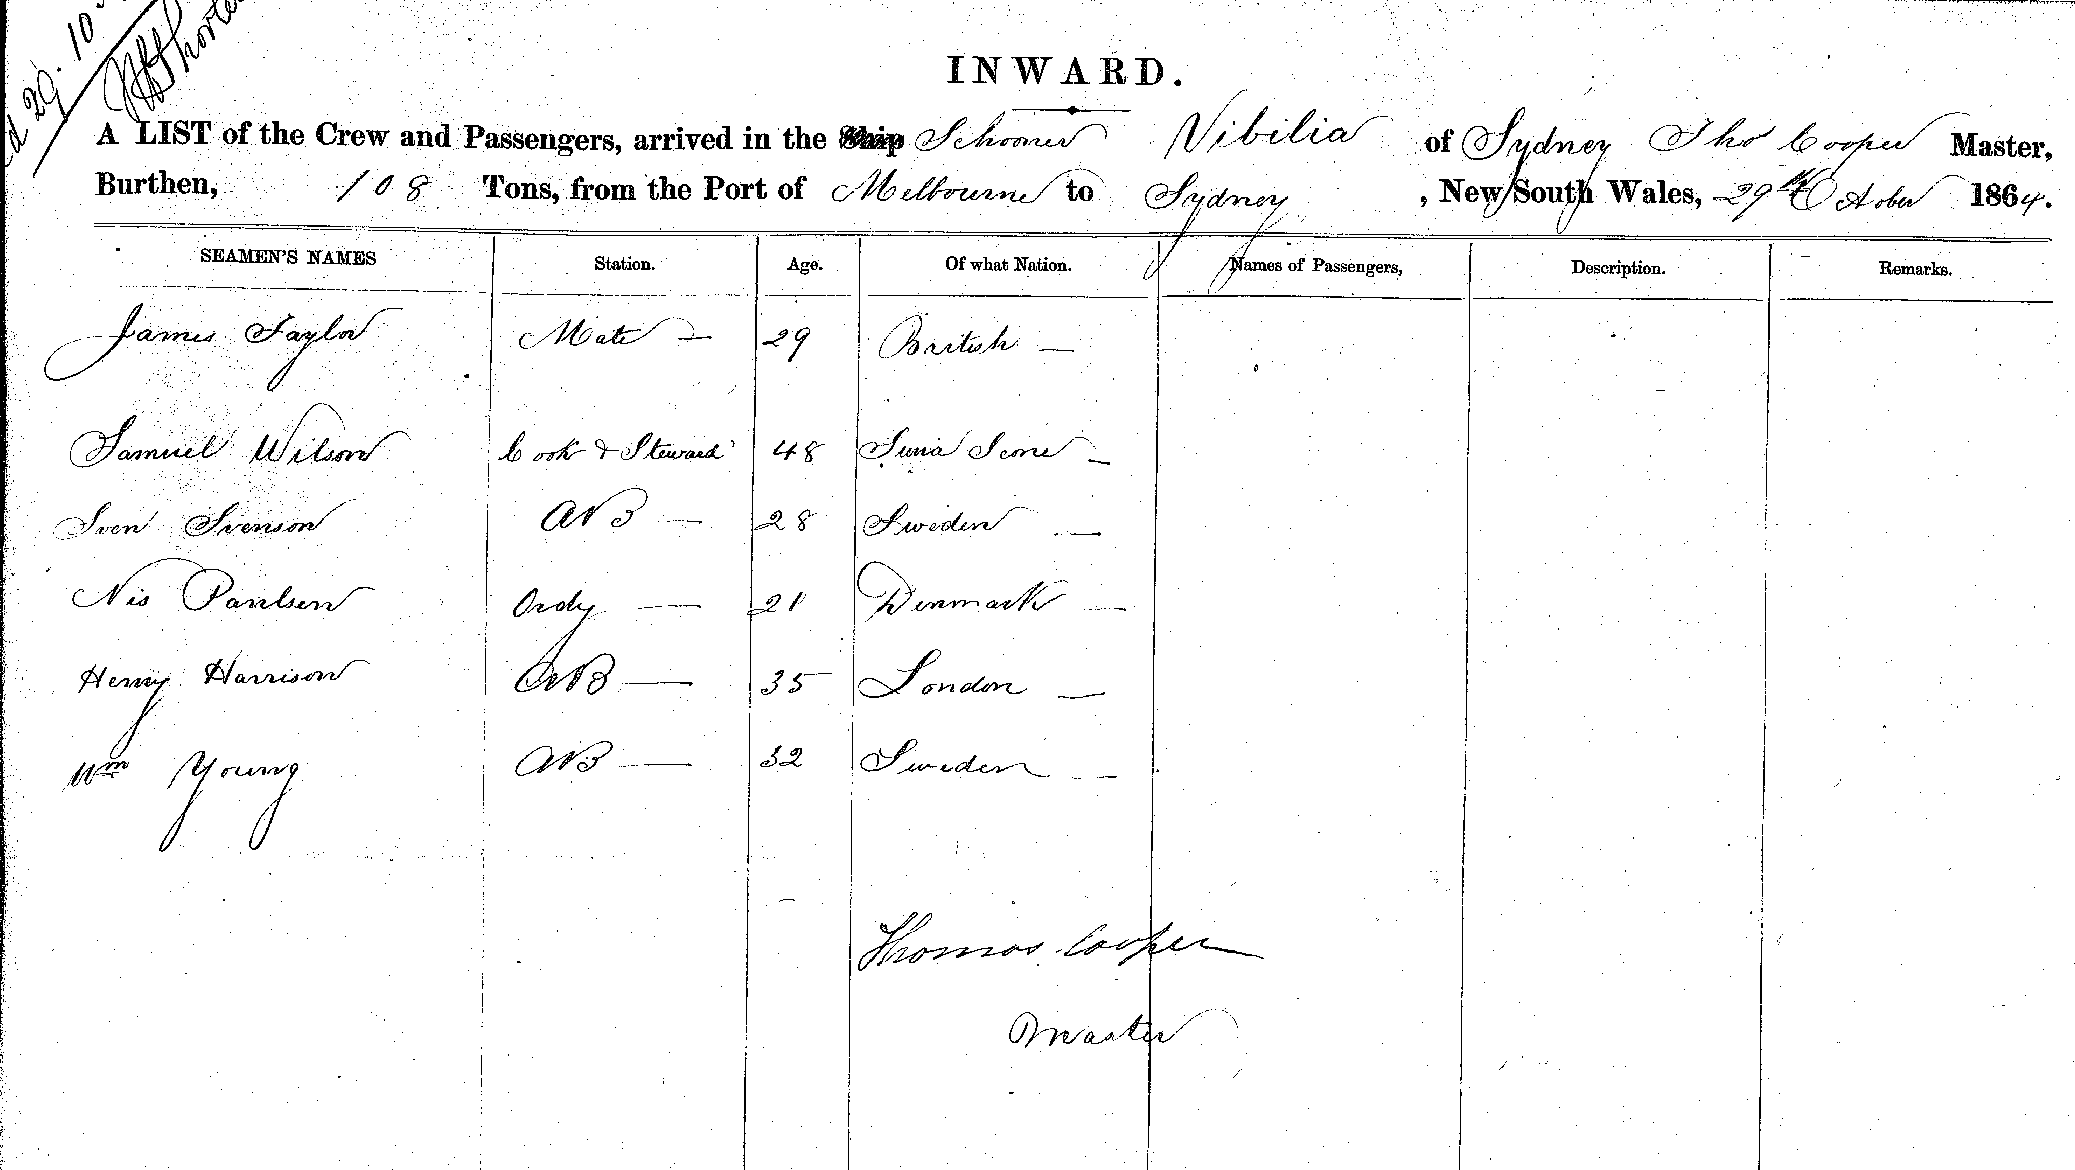 29. 10
INWARD.
A LIST of the Crew and Passengers, arrived in the Ship Schooner Vibilia of Sydney Tho Cooper Master,
Burthen, 108 Tons, from the Port of Melbourne to Sydney , New South Wales, 29th October 1864.
SEAMEN'S NAMES Station. Age. Of what Nation. Names of Passengers, Description. Remarks.
James Taylor Mate — 29 British —
Samuel Wilson Cook & Steward 48 Leone —
Sven Svenson AB — 28 Sweden —
Nis Paulsen Ordy — 21 Denmark —
Henry Harrison AB — 35 London —
Wm Young AB — 32 Sweden —
Thomas Cooper
Master